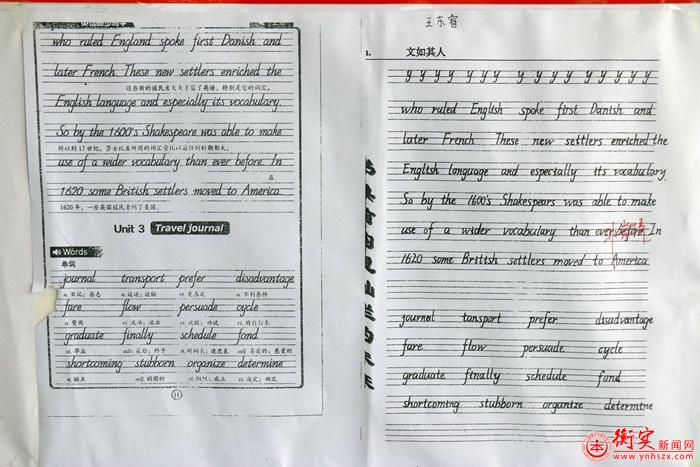 who ruled England spoke first Danish and
later French. These new settlers enriched the
这些新的殖民者大大丰富了英语，特别是它的词汇。
English language and especially its vocabulary.
So by the 1600's Shakespeare was able to make
所以到17世纪，莎士比亚所用的词汇量比以前任何时期都大。
use of a wider vocabulary than ever before. In
在
1620 some British settlers moved to America.
1620年，一些英国殖民者到了美国。
Unit 3 Travel journal
Words
单词
journal transport prefer disadvantage
n. 日记；杂志 n. 运送；运输 vt. 更喜欢 n. 不利条件
fare flow persuade cycle
n. 费用 vi. 流动；流出 vt. 说服；劝说 vi. 骑自行车
graduate finally schedule fond
vi. 毕业 adv. 最后；终于 n. 时间表；进度表 adj. 喜爱的；慈爱的
shortcoming stubborn organize determine
n. 缺点 adj. 顽固的 vt. 组织；成立 vt. 决定；确定
11
王东睿
1. 文如其人
y y y y y y y y y y y y y y y y
who ruled English spoke first Danish and
later French. These new settlers enriched the
English language and especially its vocabulary.
So by the 1600's Shakespears was able to make
use of a wider vocabulary than ever before. In
1620 some British settlers moved to America.
journal tansport prefer disadvantage
fare flow persuade cycle
graduate finally schedule fond
shortcoming stubborn organize determine
衡实新闻网
www.ynhszx.com